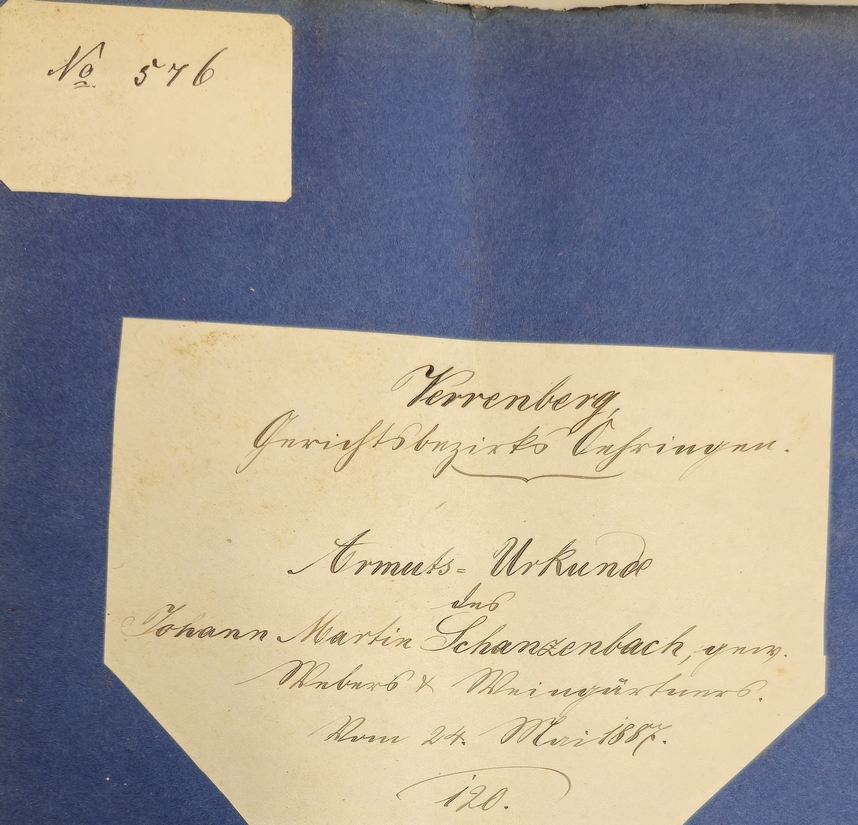 No 576
Verrenberg,
Gerichtsbezirks Oehringen.
Armuts= Urkunde
des
Johann Martin Schanzenbach, gew.
Webers & Weingärtners.
Vom 24. Mai 1887.
120.